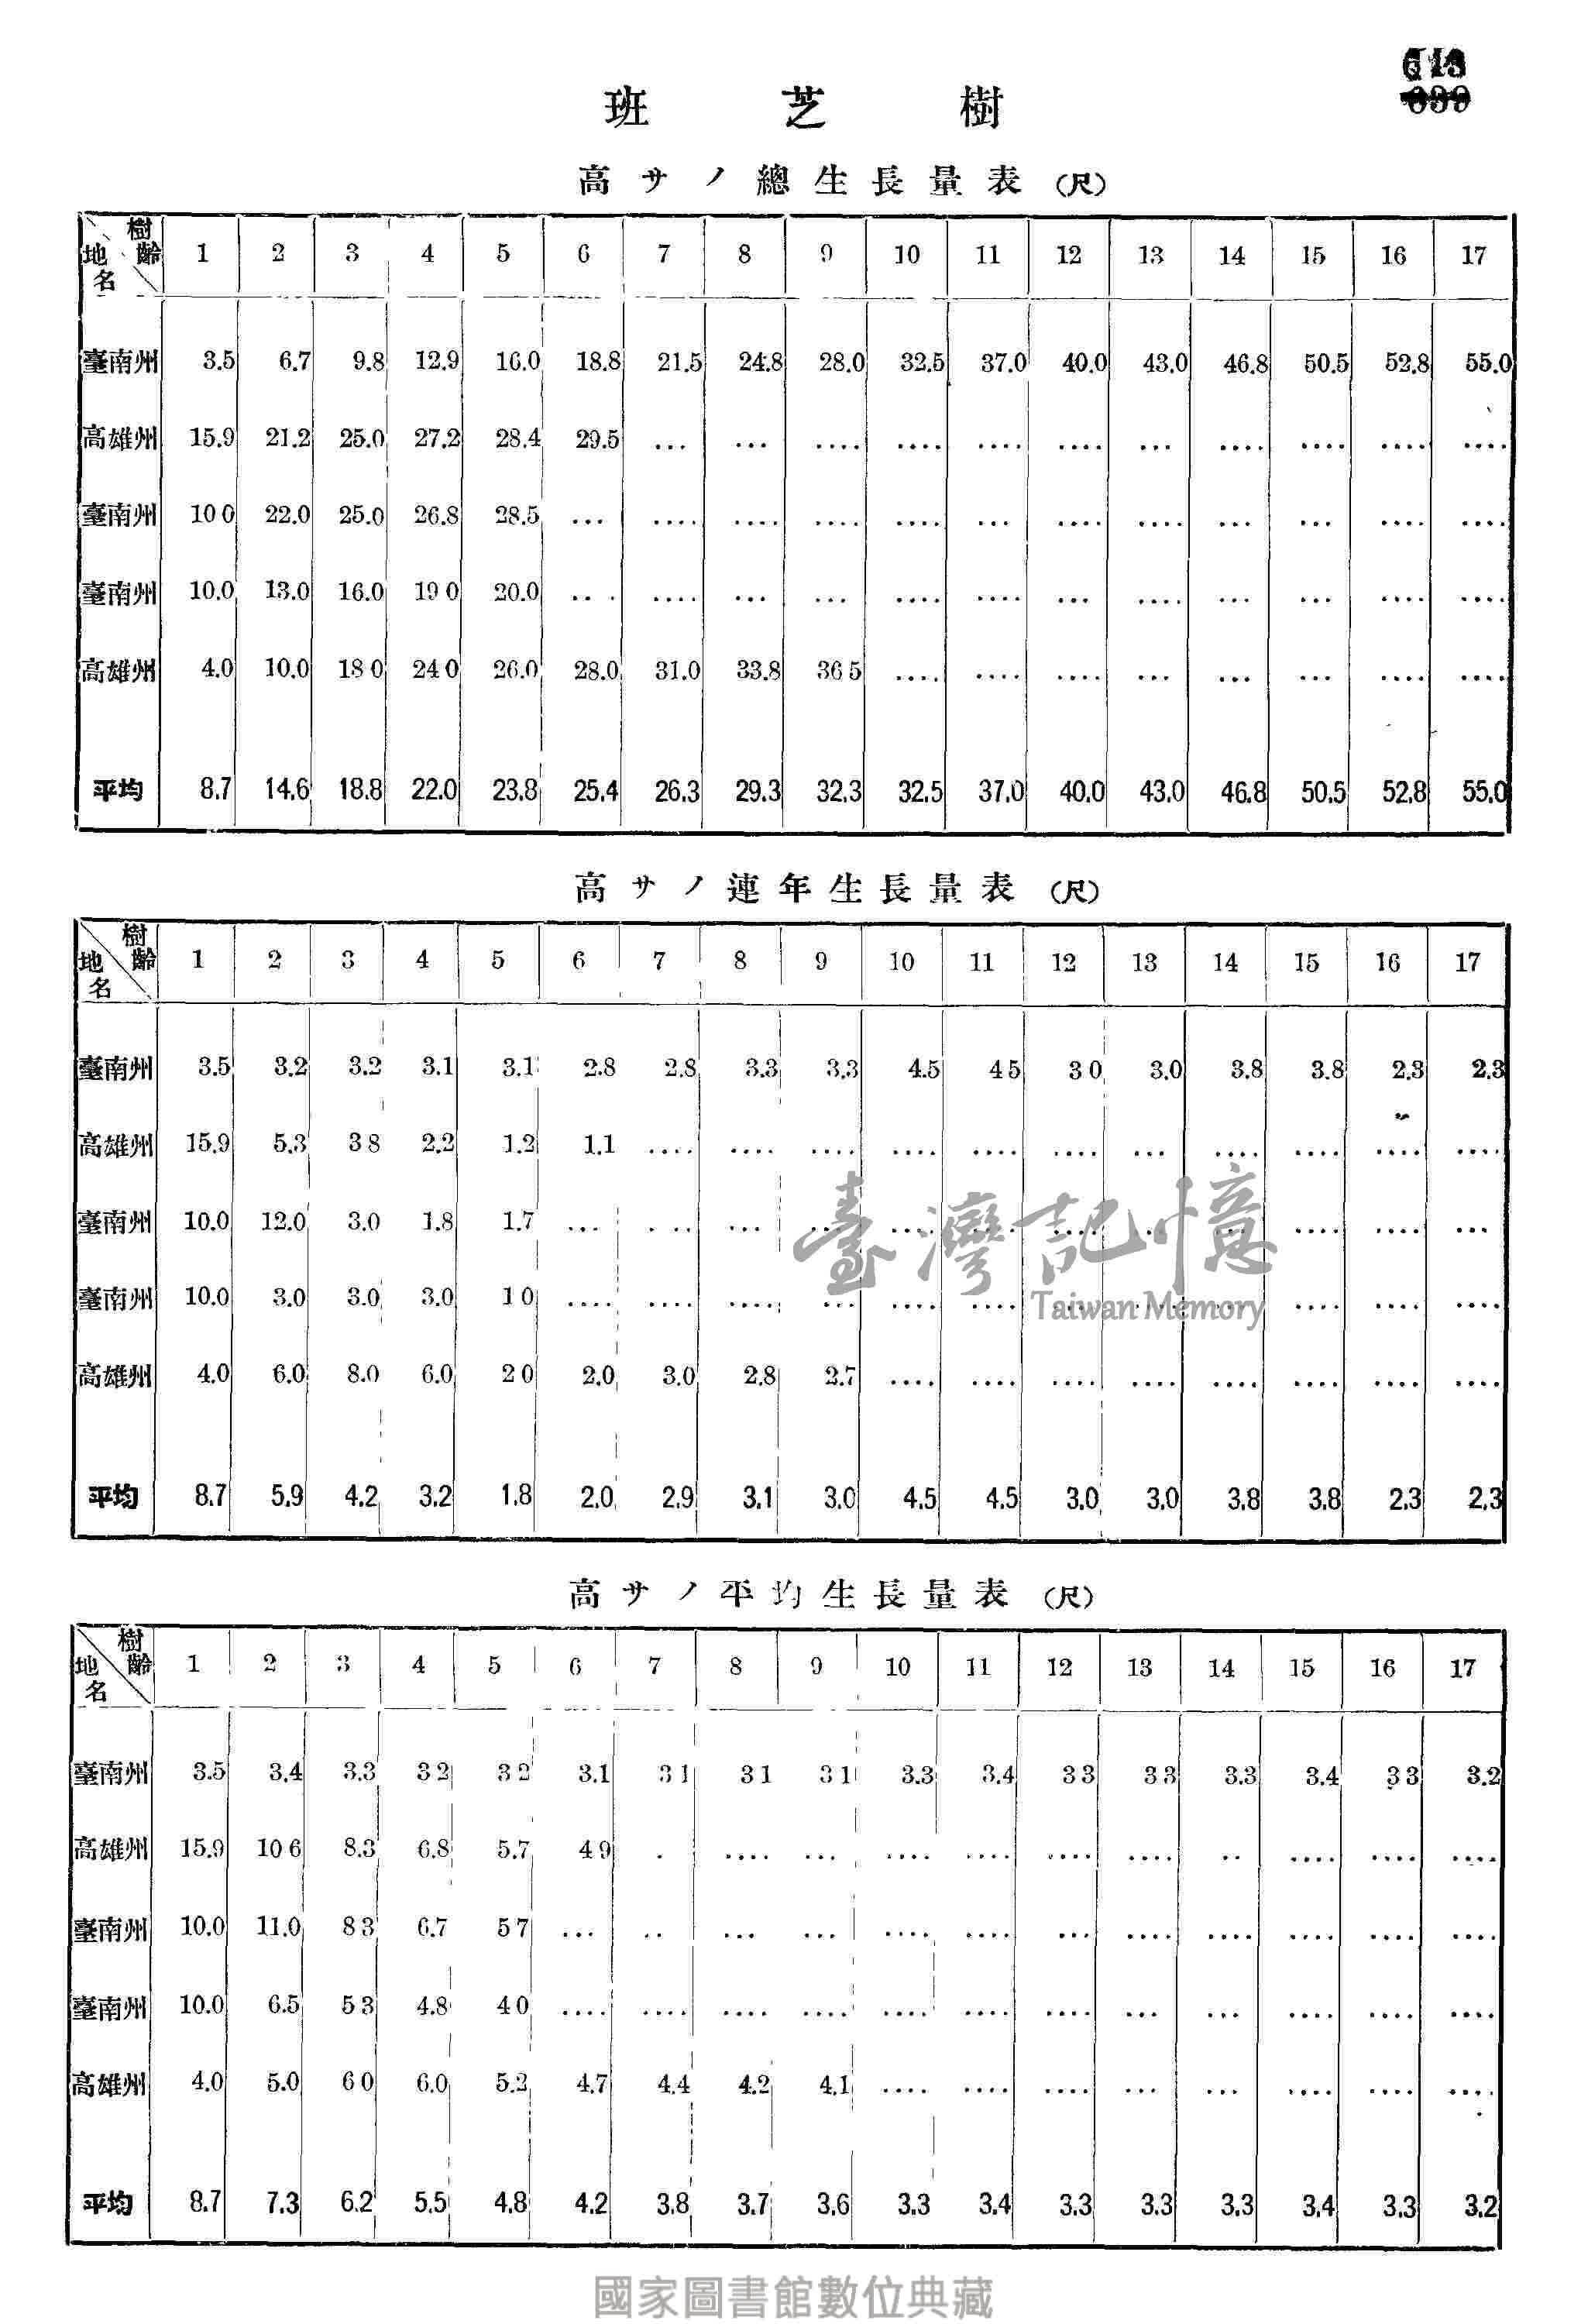 613
639
班芝樹
高サノ總生長量表(尺)
樹齡 地名 1 2 3 4 5 6 7 8 9 10 11 12 13 14 15 16 17
臺南州 3.5 6.7 9.8 12.9 16.0 18.8 21.5 24.8 28.0 32.5 37.0 40.0 43.0 46.8 50.5 52.8 55.0
高雄州 15.9 21.2 25.0 27.2 28.4 29.5 ... ... .... .... .... .... ... .... .... .... ....
臺南州 10 0 22.0 25.0 26.8 28.5 ... .... .... .... .... ... .... .... ... ... .... ....
臺南州 10.0 13.0 16.0 19 0 20.0 .. . .... ... ... .... .... ... .... ... ... .... ....
高雄州 4.0 10.0 18 0 24 0 26.0 28.0 31.0 33.8 36 5 .... .... .... ... ... ... .... ....
平均 8.7 14.6 18.8 22.0 23.8 25.4 26.3 29.3 32.3 32.5 37.0 40.0 43.0 46.8 50.5 52.8 55.0
高サノ連年生長量表(尺)
樹齡 地名 1 2 3 4 5 6 7 8 9 10 11 12 13 14 15 16 17
臺南州 3.5 3.2 3.2 3.1 3.1 2.8 2.8 3.3 3.3 4.5 4 5 3 0 3.0 3.8 3.8 2.3 2.3
高雄州 15.9 5.3 3 8 2.2 1.2 1.1 .... .... .... .... .... .... ... .... .... .... ....
臺南州 10.0 12.0 3.0 1.8 1.7 ... . ... ... ... .... .... .... ... ... .... .... ...
臺南州 10.0 3.0 3.0 3.0 1 0 .... .... .... ... .... .... .... .... ... .... .... ....
高雄州 4.0 6.0 8.0 6.0 2 0 2.0 3.0 2.8 2.7 .... .... .... .... .... .... .... ....
平均 8.7 5.9 4.2 3.2 1.8 2.0 2.9 3.1 3.0 4.5 4.5 3.0 3.0 3.8 3.8 2.3 2.3
臺灣記憶
Taiwan Memory
高サノ平均生長量表(尺)
樹齡 地名 1 2 3 4 5 6 7 8 9 10 11 12 13 14 15 16 17
臺南州 3.5 3.4 3.3 3 2 3 2 3.1 3 1 3 1 3 1 3.3 3.4 3 3 3 3 3.3 3.4 3 3 3.2
高雄州 15.9 10 6 8.3 6.8 5.7 4 9 . .... ... .... .... .... .... .. .... .... ....
臺南州 10.0 11.0 8 3 6.7 5 7 ... .. ... ... .... .... ... .... .... .... .... ....
臺南州 10.0 6.5 5 3 4.8 4 0 .... .... .... .... .... .... .... ... ... .... .... ....
高雄州 4.0 5.0 6 0 6.0 5.2 4.7 4.4 4.2 4.1 .... .... .... ... ... .... .... ....
平均 8.7 7.3 6.2 5.5 4.8 4.2 3.8 3.7 3.6 3.3 3.4 3.3 3.3 3.3 3.4 3.3 3.2
國家圖書館數位典藏